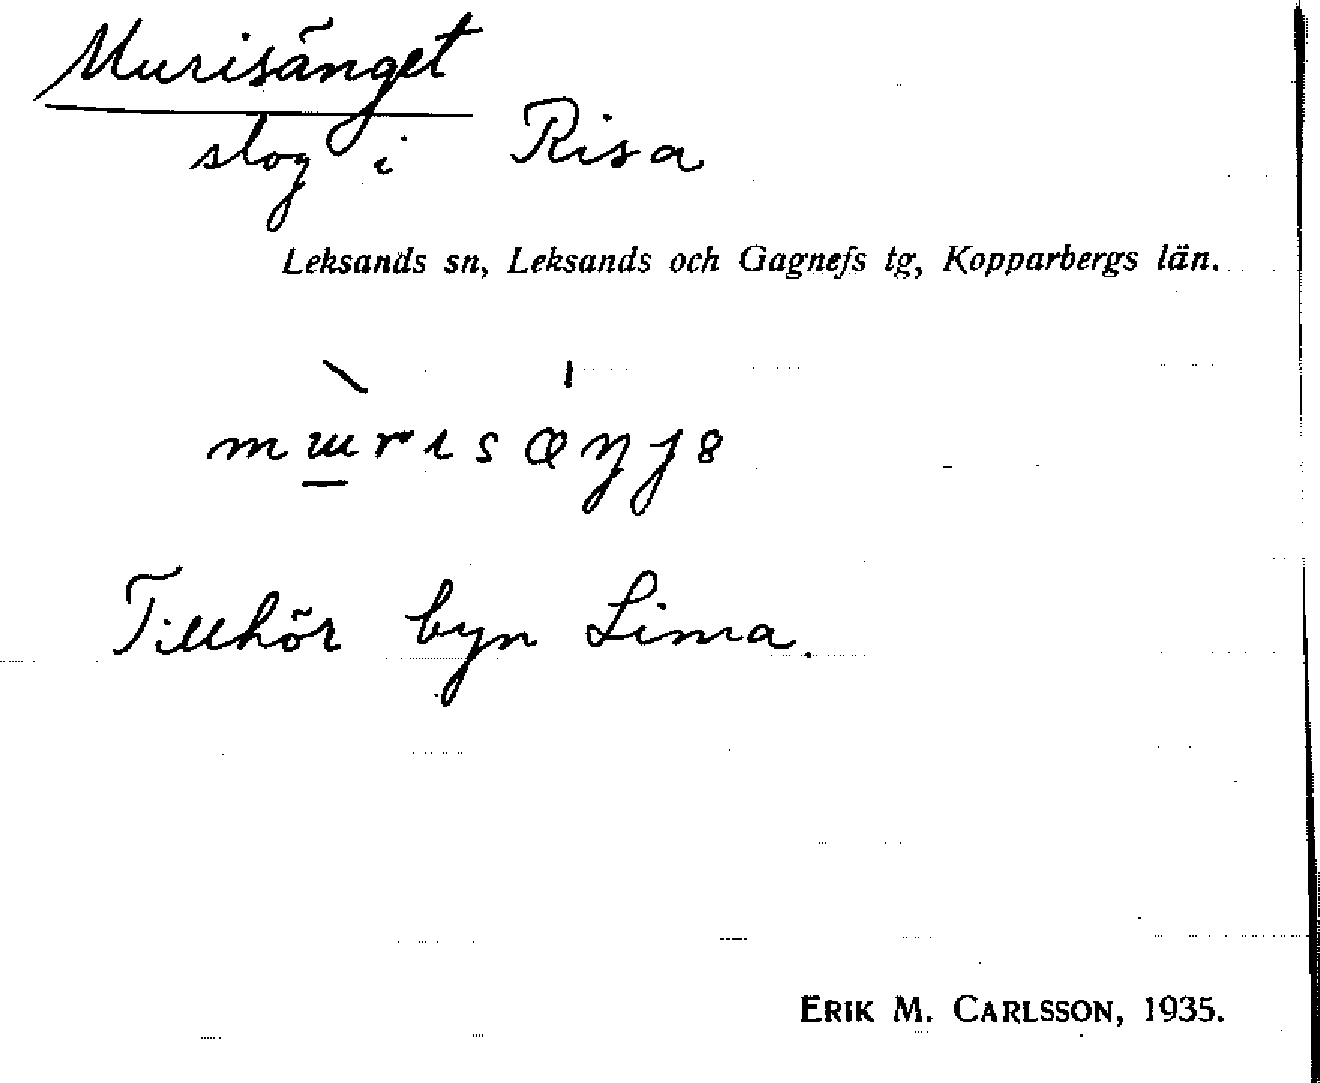 Murisänget
slog i Risa
Leksands sn, Leksands och Gagnefs tg, Kopparbergs län.
Tillhör byn Lima.
ERIK M. CARLSSON, 1935.